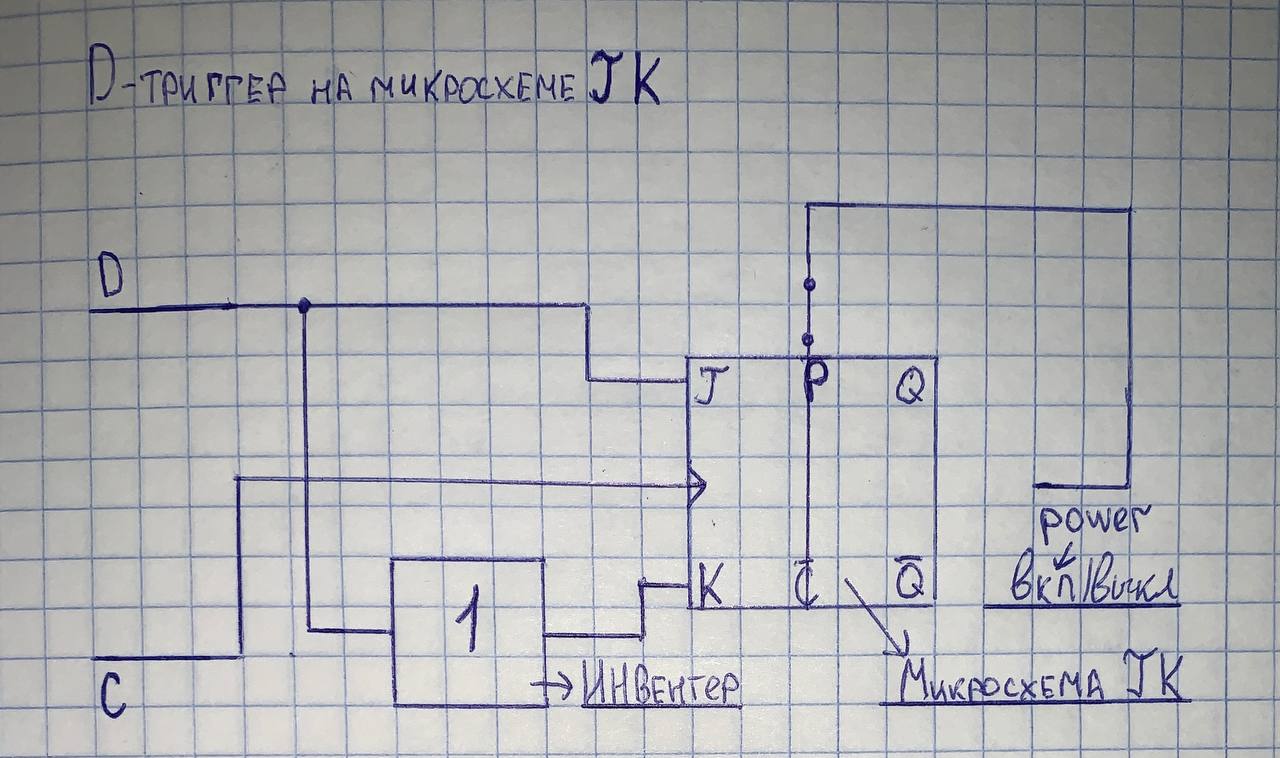 D-ТРИГГЕР НА МИКРОСХЕМЕ JK
D
J P Q
1
K C Q̅
power
Вкл/Выкл
C
ИНВЕНТЕР
Микросхема JK